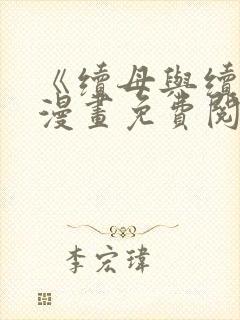 《續母與續
漫畫免費閱
李宏瑋